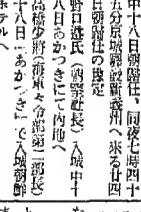 中十八日朝歸任、同夜七時四十
五分京城驛發新義州へ來る廿四
日朝歸任の豫定
野口遵氏（朝窒社長）入城中十
八日あかつきにて內地へ
高橋少將（海軍々令部第三部長）
十八日「あかつき」で入城朝鮮
ホテルへ